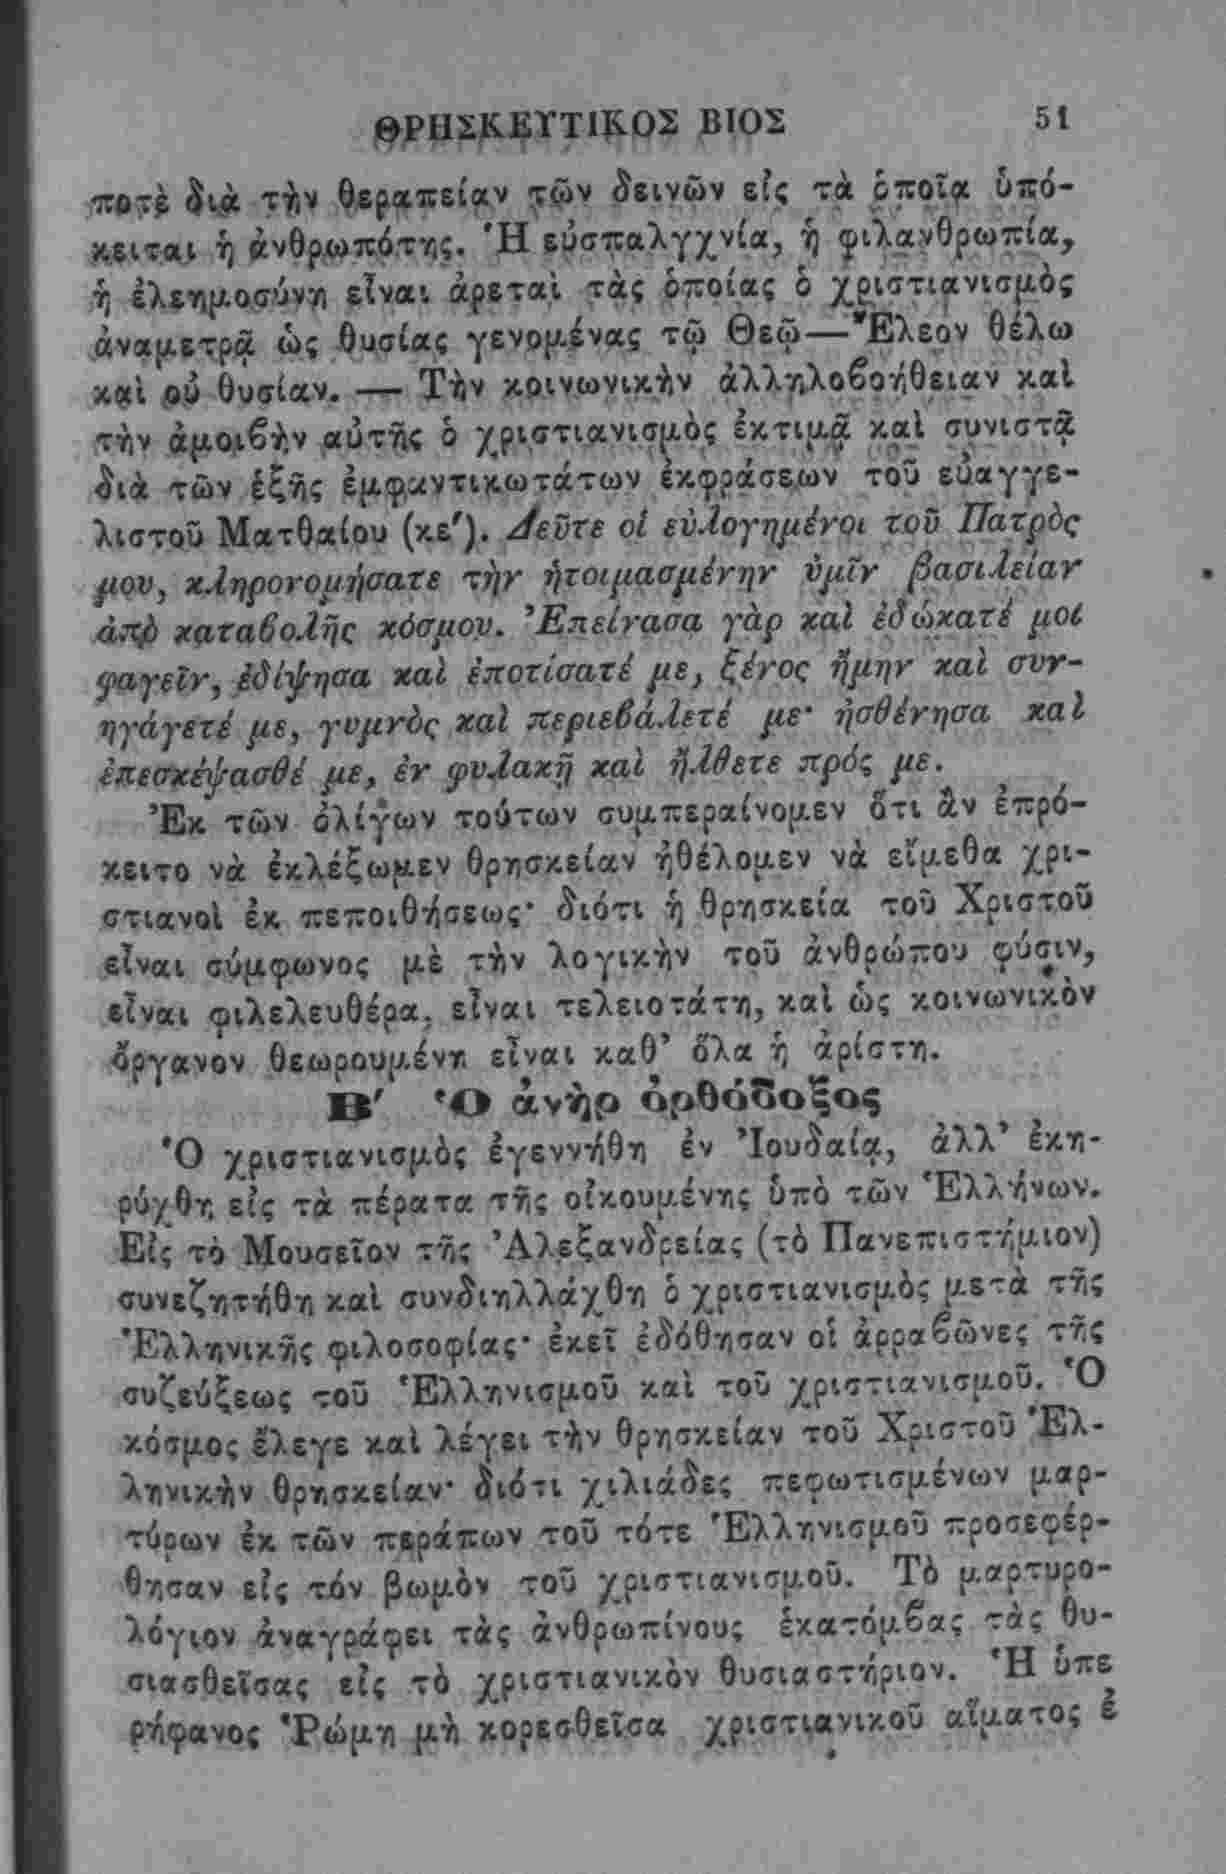 ΘΡΗΣΚΕΥΤΙΚΟΣ ΒΙΟΣ 51
ποτὲ διὰ τὴν θεραπείαν τῶν δεινῶν εἰς τὰ ὁποῖα ὑπό-
κειται ἡ ἀνθρωπότης. Ἡ εὐσπαλγχνία, ἡ φιλανθρωπία,
ἡ ἐλεημοσύνη εἶναι ἀρεταὶ τὰς ὁποίας ὁ χριστιανισμὸς
ἀναμετρᾷ ὡς θυσίας γενομένας τῷ Θεῷ—Ἔλεον θέλω
καὶ οὐ θυσίαν. — Τὴν κοινωνικὴν ἀλληλοβοήθειαν καὶ
τὴν ἀμοιβὴν αὐτῆς ὁ χριστιανισμὸς ἐκτιμᾷ καὶ συνιστᾷ
διὰ τῶν ἑξῆς ἐμφαντικωτάτων ἐκφράσεων τοῦ εὐαγγε-
λιστοῦ Ματθαίου (κε′). Δεῦτε οἱ εὐλογημένοι τοῦ Πατρὸς
μου, κληρονομήσατε τὴν ἡτοιμασμένην ὑμῖν βασιλείαν
ἀπὸ καταβολῆς κόσμου. Ἐπείνασα γὰρ καὶ ἐδώκατέ μοι
φαγεῖν, ἐδίψησα καὶ ἐποτίσατέ με, ξένος ἤμην καὶ συν-
ηγάγετέ με, γυμνὸς καὶ περιεβάλετέ με· ἠσθένησα καὶ
ἐπεσκέψασθέ με, ἐν φυλακῇ καὶ ἤλθετε πρός με.
Ἐκ τῶν ὀλίγων τούτων συμπεραίνομεν ὅτι ἂν ἐπρό-
κειτο νὰ ἐκλέξωμεν θρησκείαν ἠθέλομεν νὰ εἴμεθα χρι-
στιανοὶ ἐκ πεποιθήσεως· διότι ἡ θρησκεία τοῦ Χριστοῦ
εἶναι σύμφωνος μὲ τὴν λογικὴν τοῦ ἀνθρώπου φύσιν,
εἶναι φιλελευθέρα, εἶναι τελειοτάτη, καὶ ὡς κοινωνικὸν
ὄργανον θεωρουμένη εἶναι καθ’ ὅλα ἡ ἀρίστη.
Β′ Ὁ ἀνὴρ ὀρθόδοξος
Ὁ χριστιανισμὸς ἐγεννήθη ἐν Ἰουδαίᾳ, ἀλλ’ ἐκη-
ρύχθη εἰς τὰ πέρατα τῆς οἰκουμένης ὑπὸ τῶν Ἑλλήνων.
Εἰς τὸ Μουσεῖον τῆς Ἀλεξανδρείας (τὸ Πανεπιστήμιον)
συνεζητήθη καὶ συνδιηλλάχθη ὁ χριστιανισμὸς μετὰ τῆς
Ἑλληνικῆς φιλοσοφίας· ἐκεῖ ἐδόθησαν οἱ ἀρραβῶνες τῆς
συζεύξεως τοῦ Ἑλληνισμοῦ καὶ τοῦ χριστιανισμοῦ. Ὁ
κόσμος ἔλεγε καὶ λέγει τὴν θρησκείαν τοῦ Χριστοῦ Ἑλ-
ληνικὴν θρησκείαν· διότι χιλιάδες πεφωτισμένων μαρ-
τύρων ἐκ τῶν περάπων τοῦ τότε Ἑλληνισμοῦ προσεφέρ-
θησαν εἰς τόν βωμὸν τοῦ χριστιανισμοῦ. Τὸ μαρτυρο-
λόγιον ἀναγράφει τὰς ἀνθρωπίνους ἑκατόμβας τὰς θυ-
σιασθεῖσας εἰς τὸ χριστιανικὸν θυσιαστήριον. Ἡ ὑπε
ρήφανος Ῥώμη μὴ κορεσθεῖσα χριστιανικοῦ αἵματος ἐ